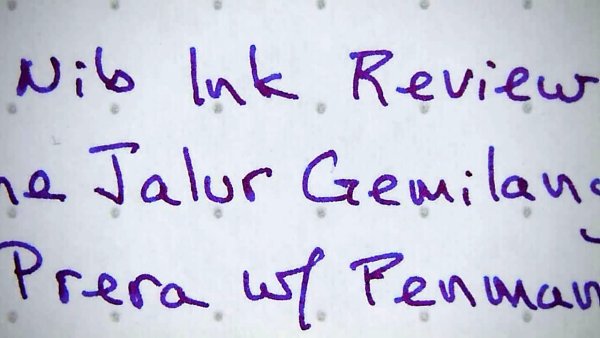 Nib Ink Review
ne Jalur Gemilang
Prera w/ Penman